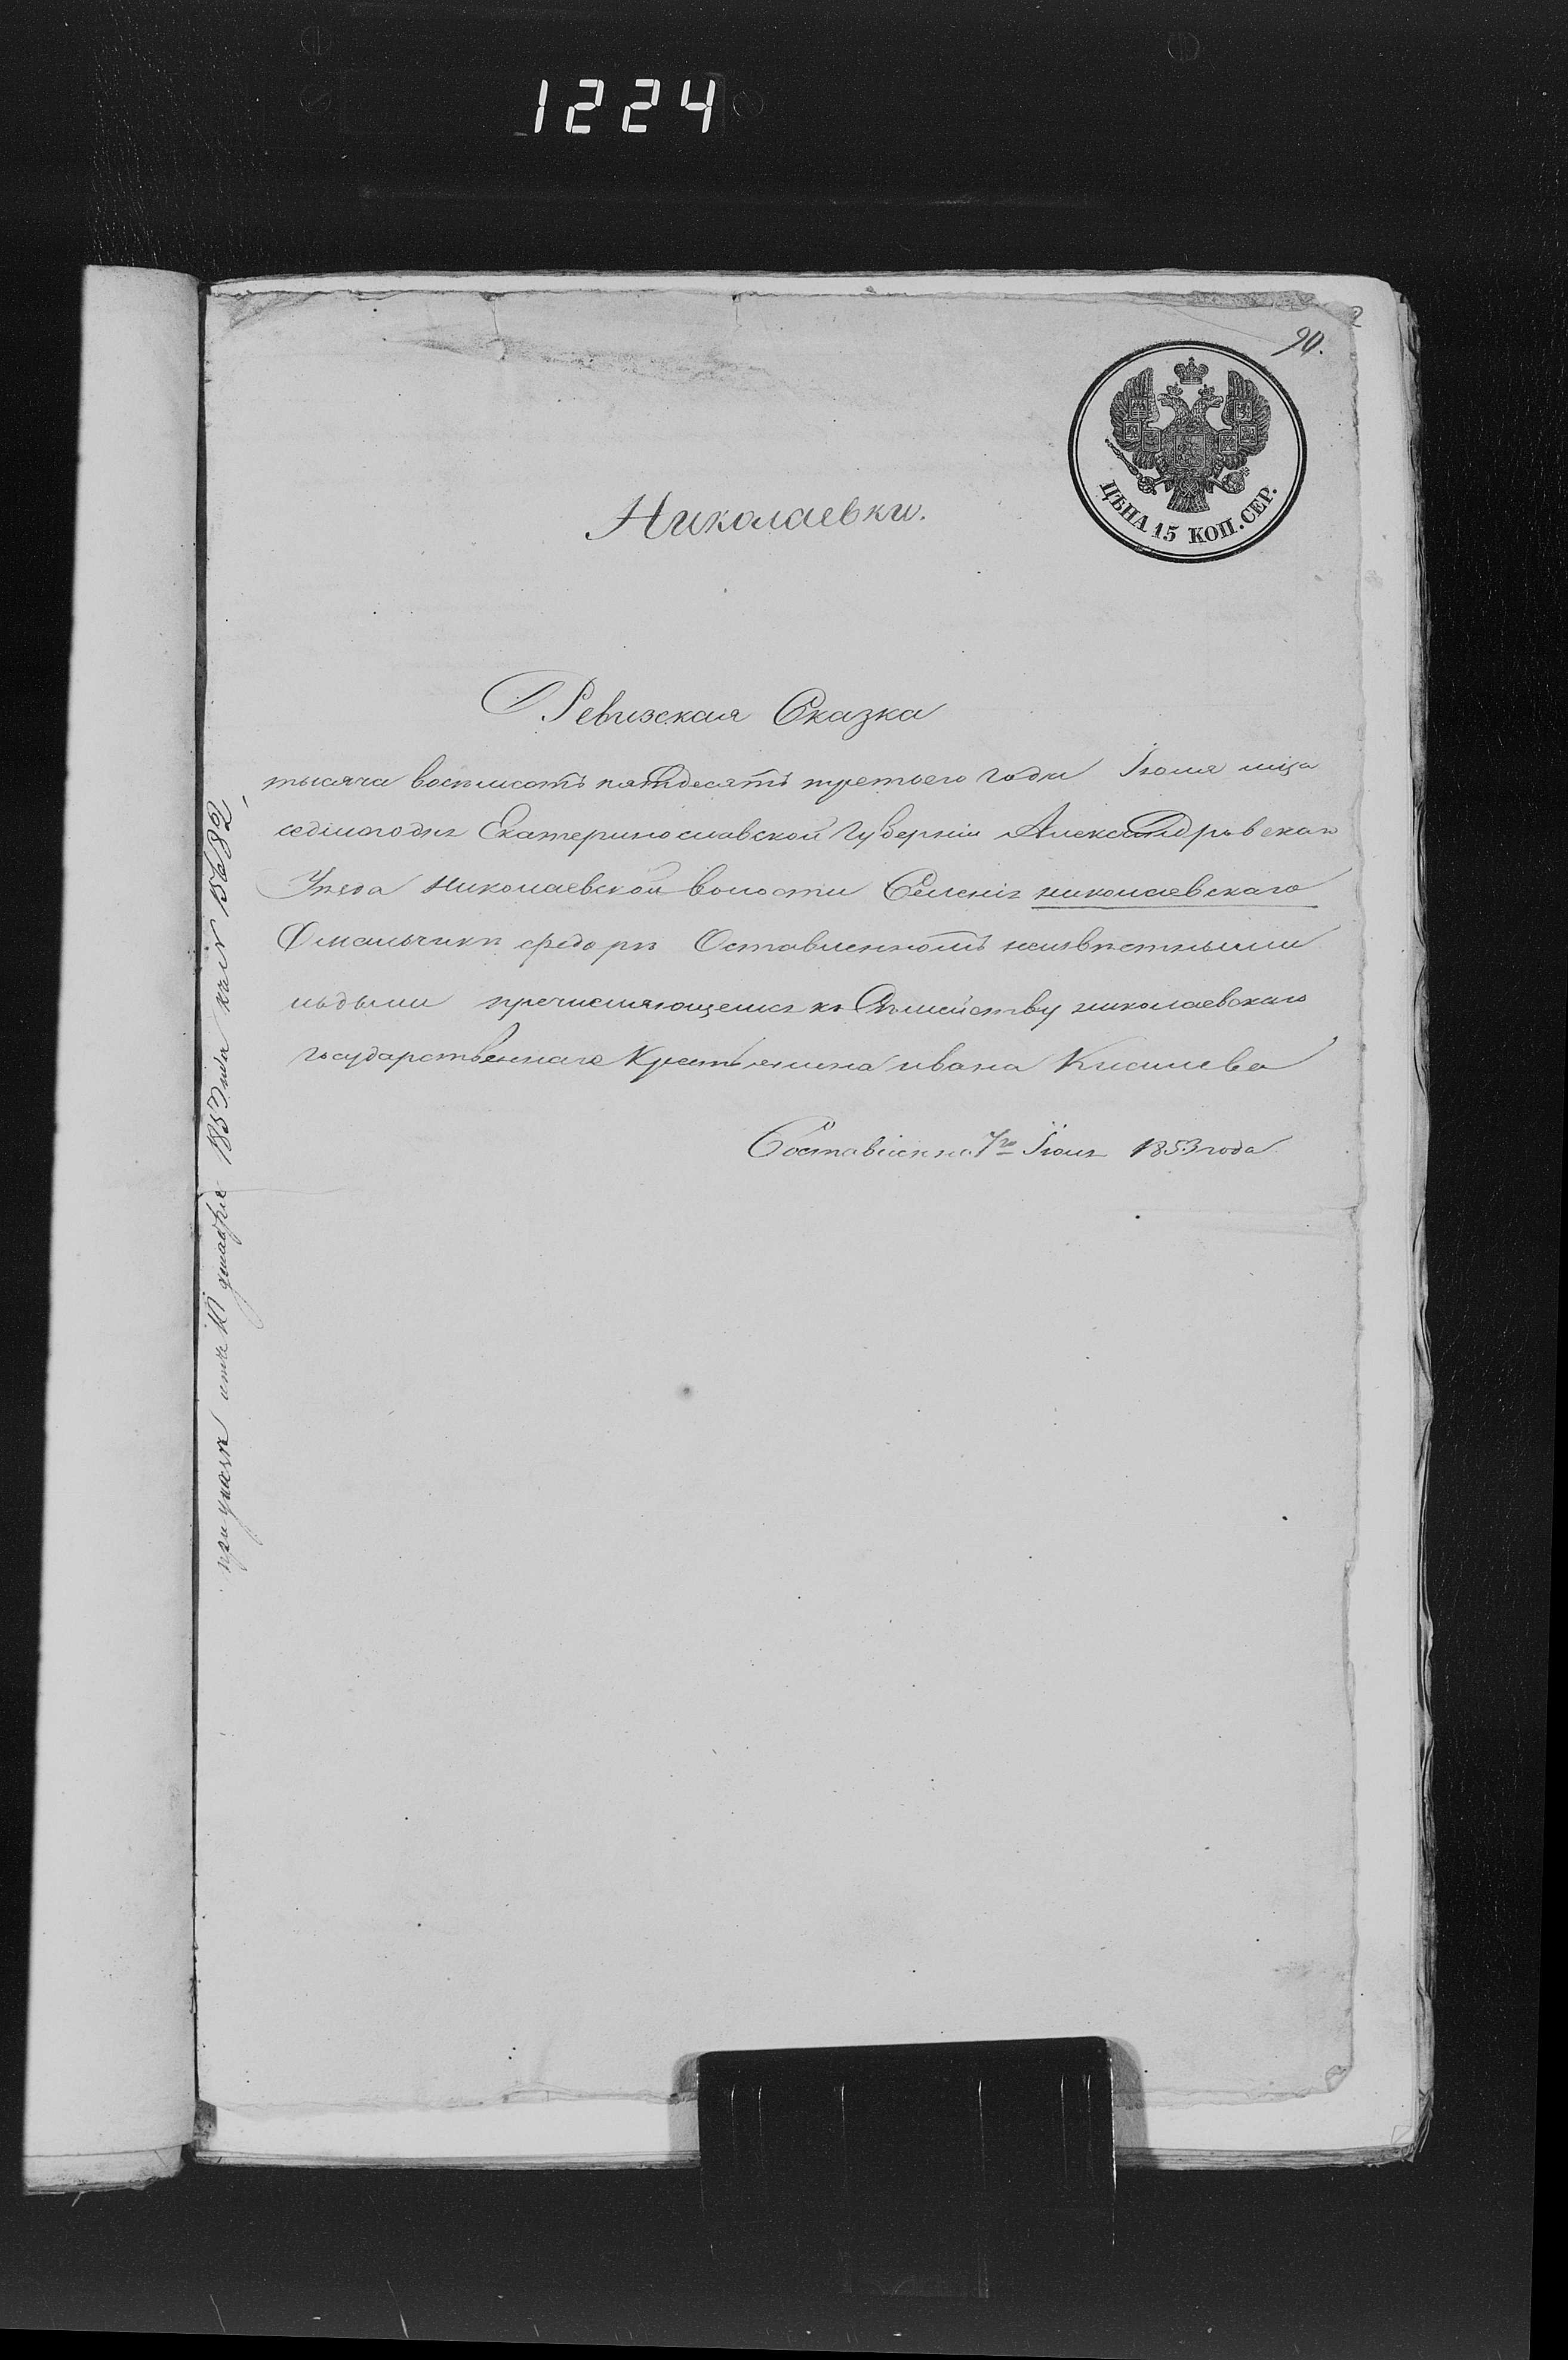 1224
90.
ЦѢНА 15 КОП. СЕР.
Николаевки.
Ревизская Сказка
тысяча восьмсотъ пятдесятъ третьего года Іюля мца
седмогодня Екатеринославской Губерніи Александровскаго
Уезда Николаевской волости Селенія николаевскаго
Омальчики федоры Оставленномъ неизвестными
людьми пречисляющемся къ Семейству николаевскаго
государственнаго Крестьянина ивана Киселева
Составленна 7го Іюля 1853 года
при указе 10 декабря 1853 года за № 15682